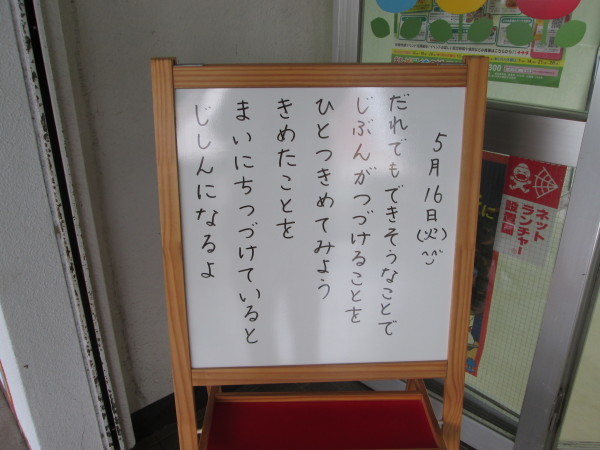 5月16日(火)^^
だれでもできそうなことで
じぶんがつづけることを
ひとつきめてみよう
きめたことを
まいにちつづけていると
じしんになるよ
ネット
ランチャー
設置店